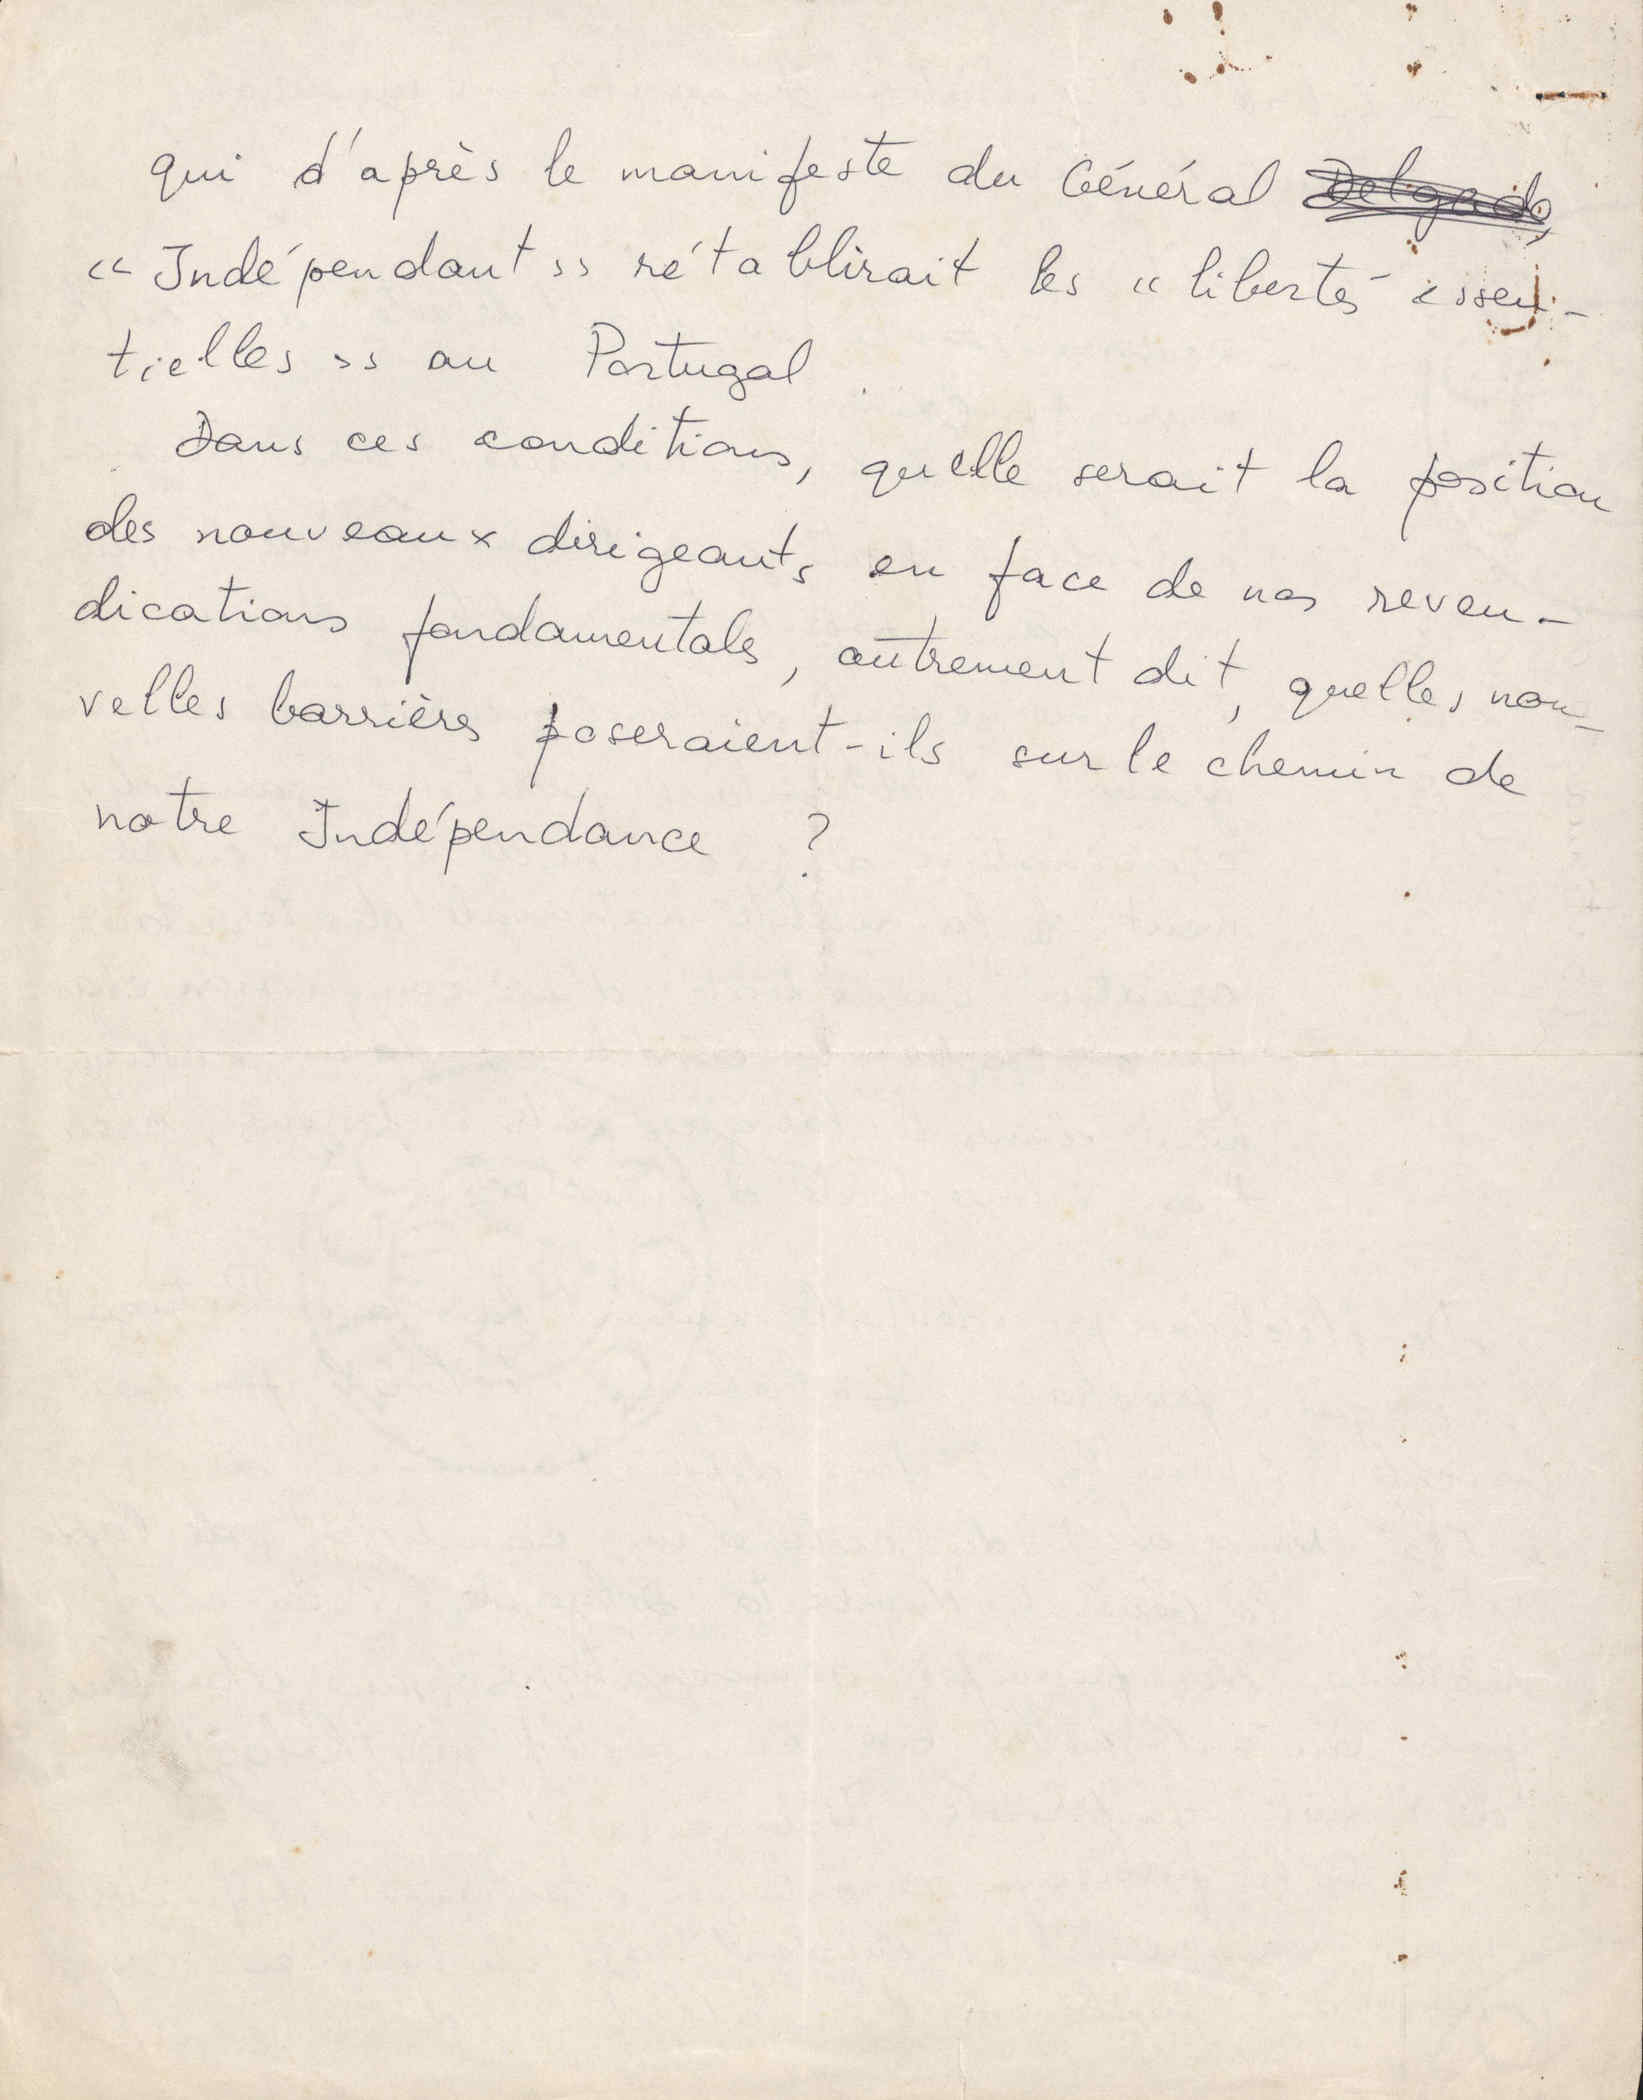 qui d'après le manifeste du Général Delgado,
« Indépendant » rétablirait les « libertés essen-
tielles » au Portugal
Dans ces conditions, quelle serait la position
des nouveaux dirigeants en face de nos reven-
dications fondamentales, autrement dit, quelles nou-
velles barrières poseraient-ils sur le chemin de
notre Indépendance ?